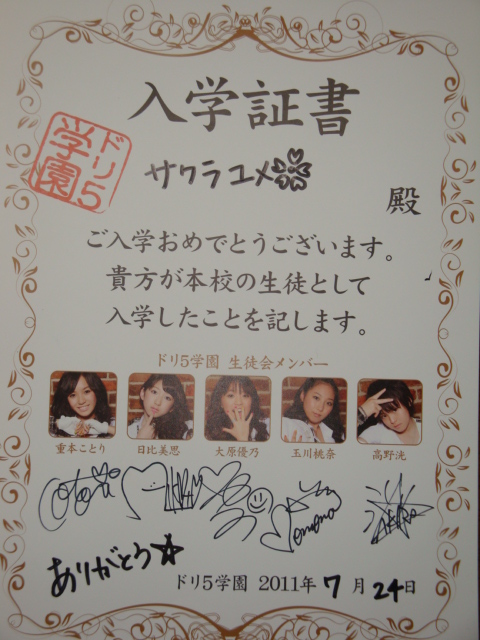 入学証書
ドリ5
学園
サクラユメ
殿
ご入学おめでとうございます。
貴方が本校の生徒として
入学したことを記します。
ドリ5学園 生徒会メンバー
重本ことり 日比美思 大原優乃 玉川桃奈 高野洸
ありがとう☆
ドリ5学園 2011年 7月 24日